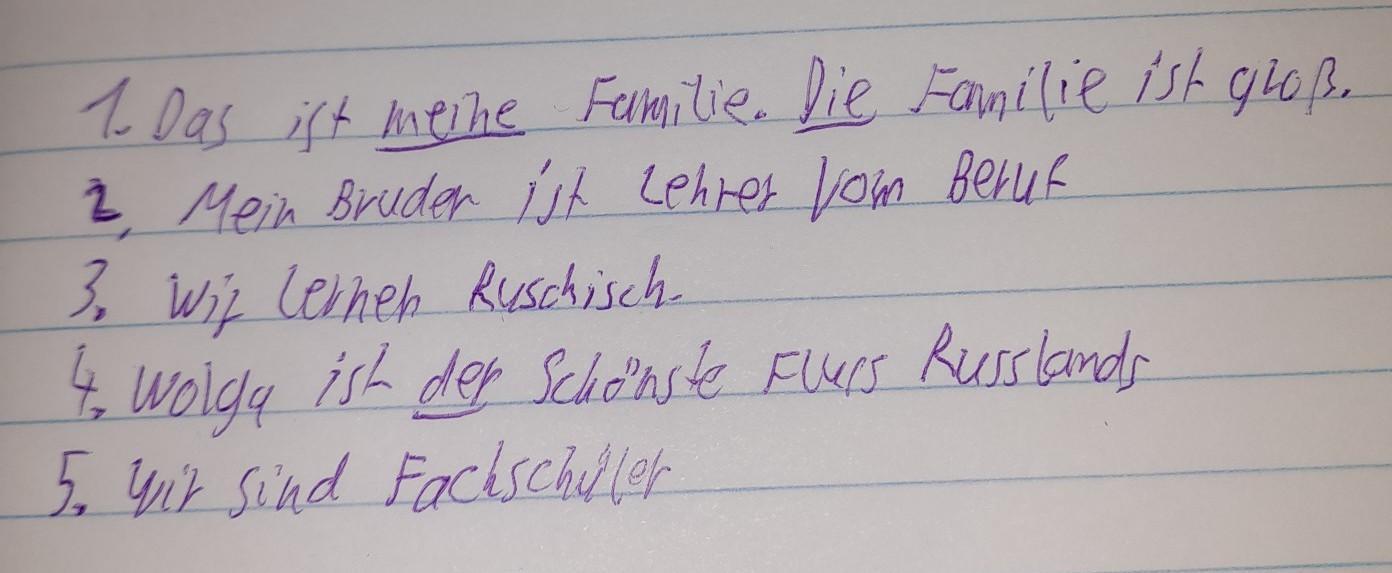 1. Das ist meine Familie. Die Familie ist groß.
2. Mein Bruder ist Lehrer vom Beruf
3. Wir lernen Ruschisch.
4. Wolga ist der Schönste Fluss Russlands
5. Wir sind Fachschüler